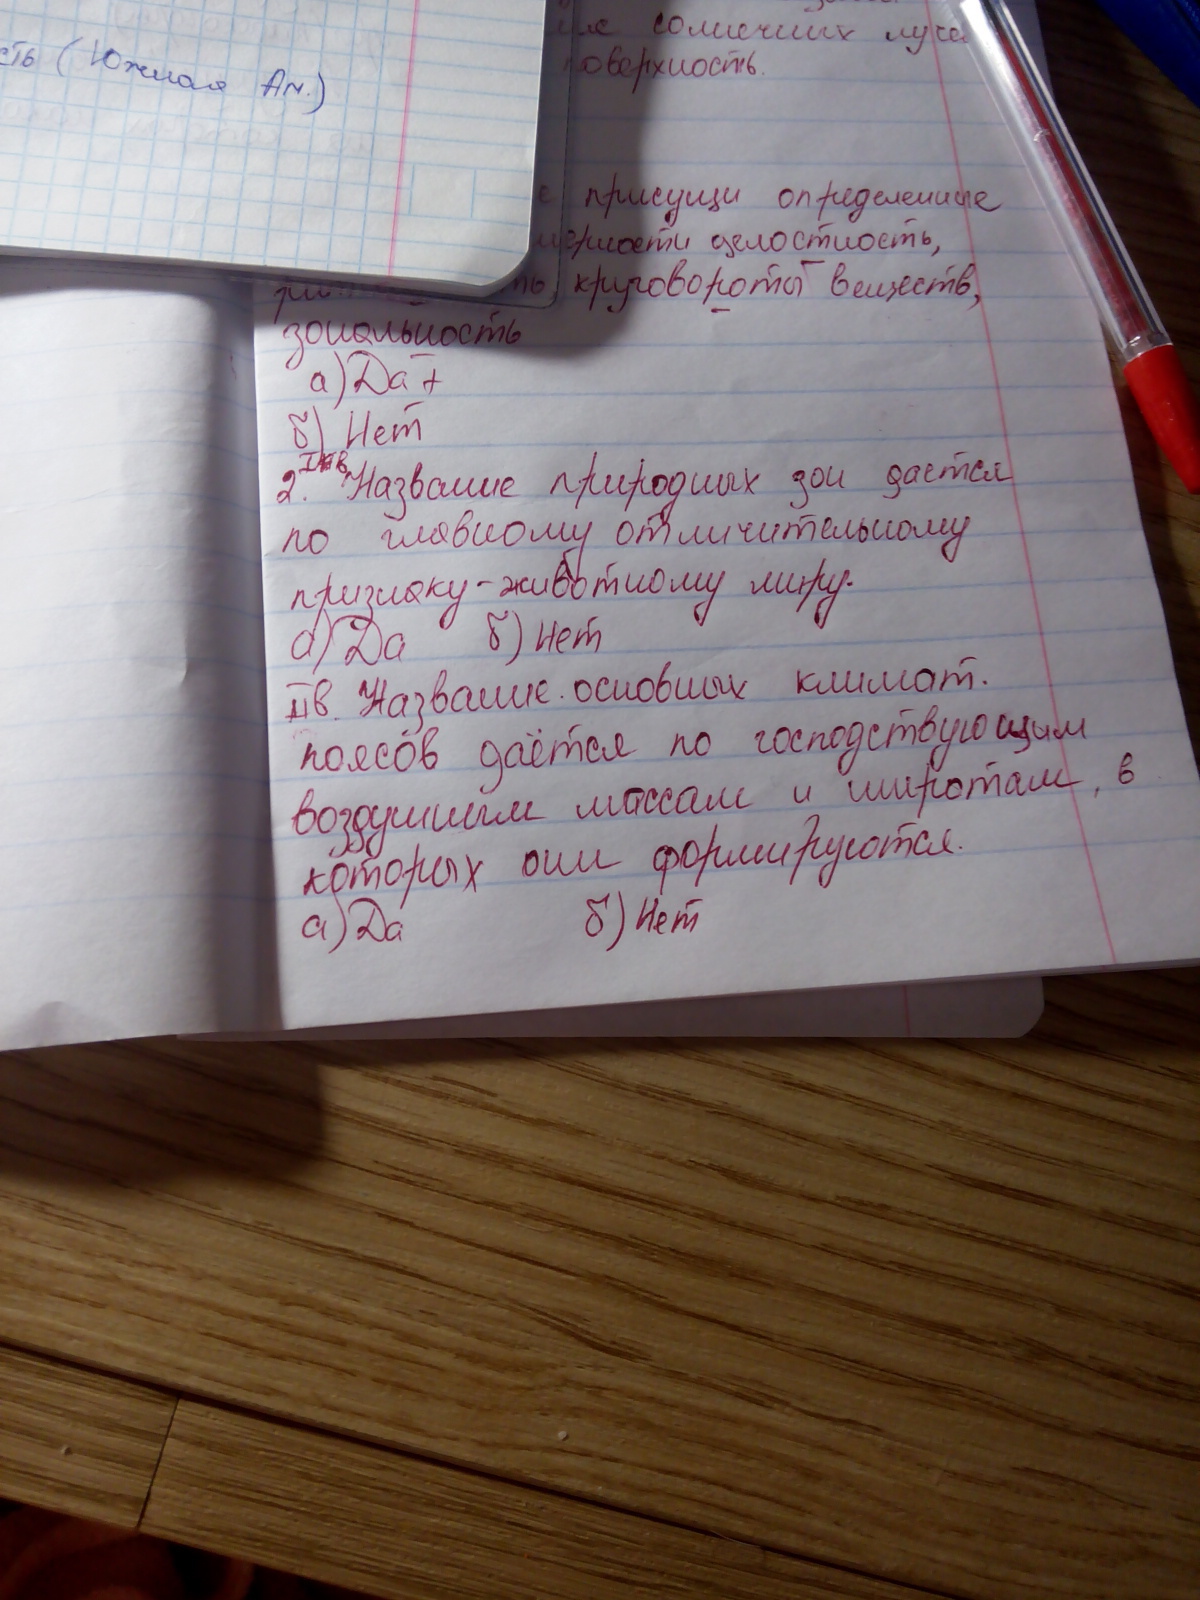 сть (Южная Ам.)
солнечных луче
поверхность.
присущи определенные
целостность,
круговороты веществ,
зональность
а) Да +
б) Нет
2. Iв. Название природных зон дается
по главному отличительному
признаку - животному миру.
а) Да б) Нет
IIв. Название основных климат.
поясов даётся по господствующим
воздушным массам и широтам, в
которых они формируются.
а) Да б) Нет